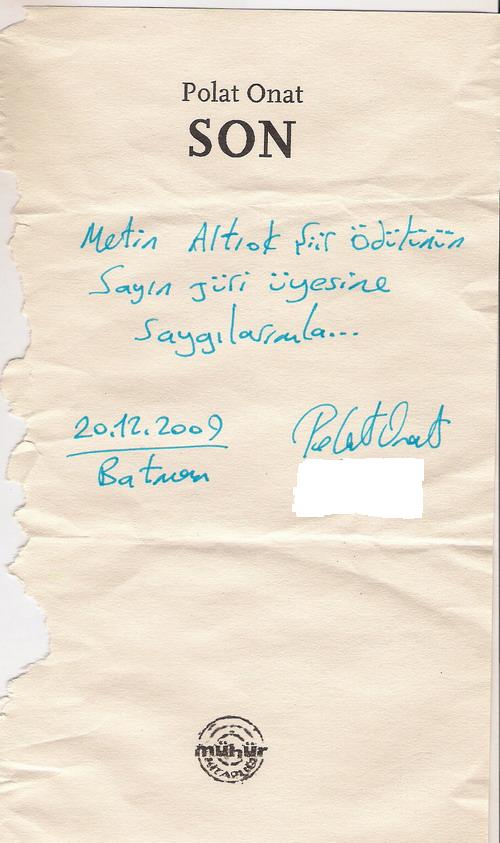 Polat Onat
SON
Metin Altıok Şiir Ödülünün
Sayın jüri üyesine
Saygılarımla...
20.12.2009
Batman
Polat Onat
mühür
KİTAPLIĞI